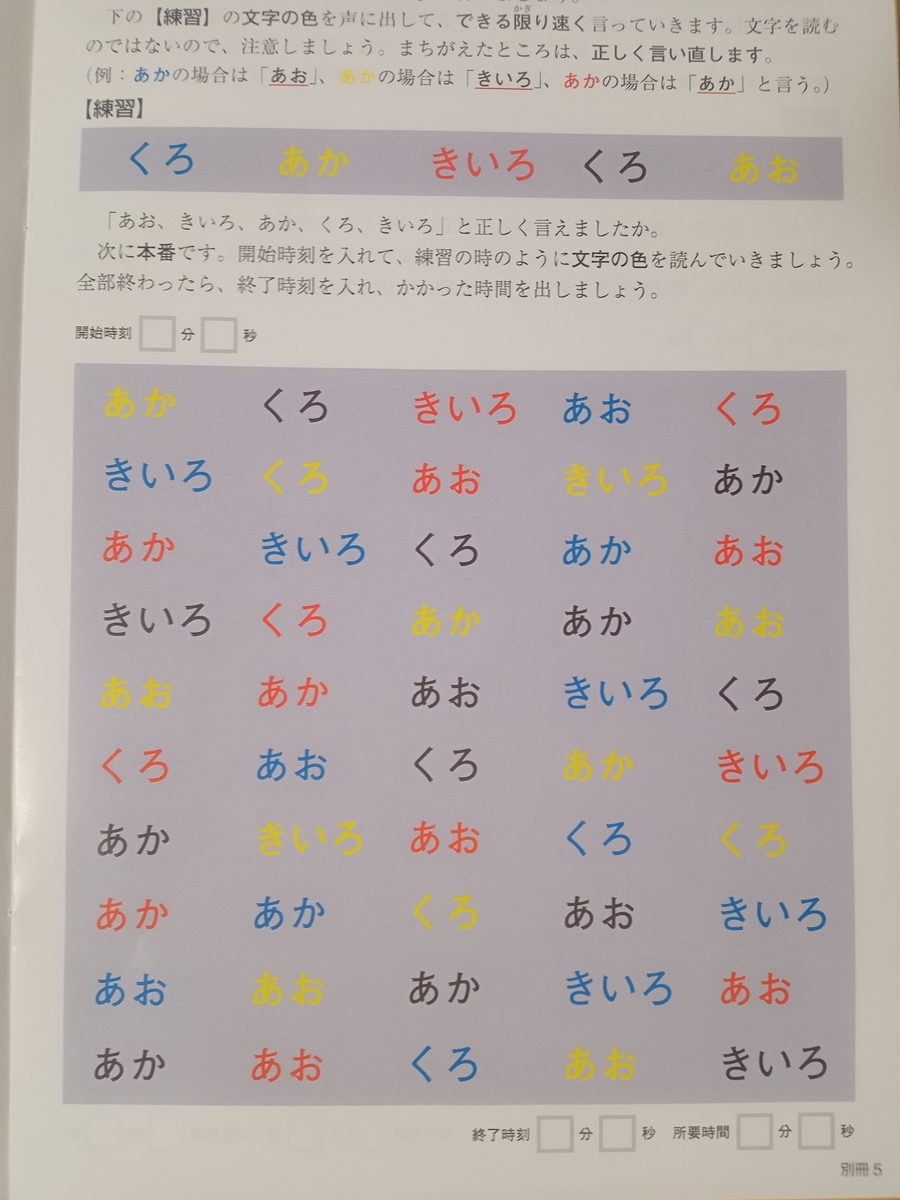 下の【練習】の文字の色を声に出して、できる限り速く言っていきます。文字を読む
のではないので、注意しましょう。まちがえたところは、正しく言い直します。
(例：あかの場合は「あお」、あかの場合は「きいろ」、あかの場合は「あか」と言う。)
【練習】
くろ あか きいろ くろ あお
「あお、きいろ、あか、くろ、きいろ」と正しく言えましたか。
次に本番です。開始時刻を入れて、練習の時のように文字の色を読んでいきましょう。
全部終わったら、終了時刻を入れ、かかった時間を出しましょう。
開始時刻 分 秒
あか くろ きいろ あお くろ
きいろ くろ あお きいろ あか
あか きいろ くろ あか あお
きいろ くろ あか あか あお
あお あか あお きいろ くろ
くろ あお くろ あか きいろ
あか きいろ あお くろ くろ
あか あか くろ あお きいろ
あお あお あか きいろ あお
あか あお くろ あお きいろ
終了時刻 分 秒 所要時間 分 秒
別冊 5